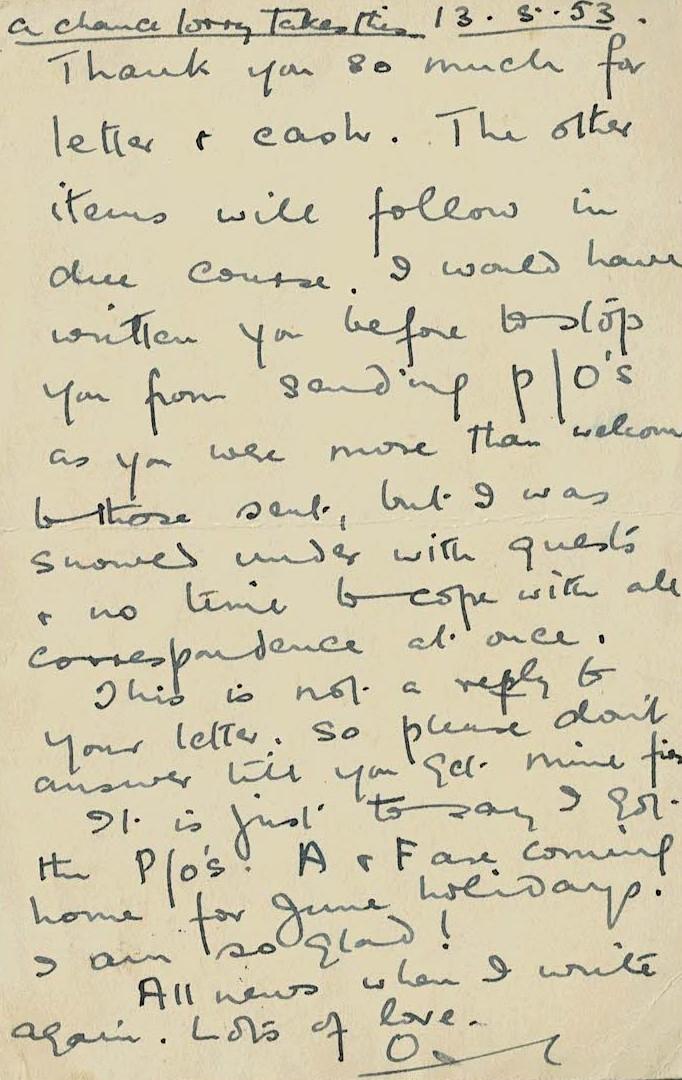 a chance lorry takes this 13.5.53.
Thank you so much for
letter & cash. The other
items will follow in
due course. I would have
written you before to stop
you from sending P/O's
as you were more than welcome
to those sent, but I was
snowed under with guests
& no time to cope with all
correspondence at once.
This is not a reply to
your letter. So please don't
answer till you get mine first
It is just to say I got
the P/O's. A & F are coming
home for June holidays.
I am so glad!
All news when I write
again. Lots of love.
O.